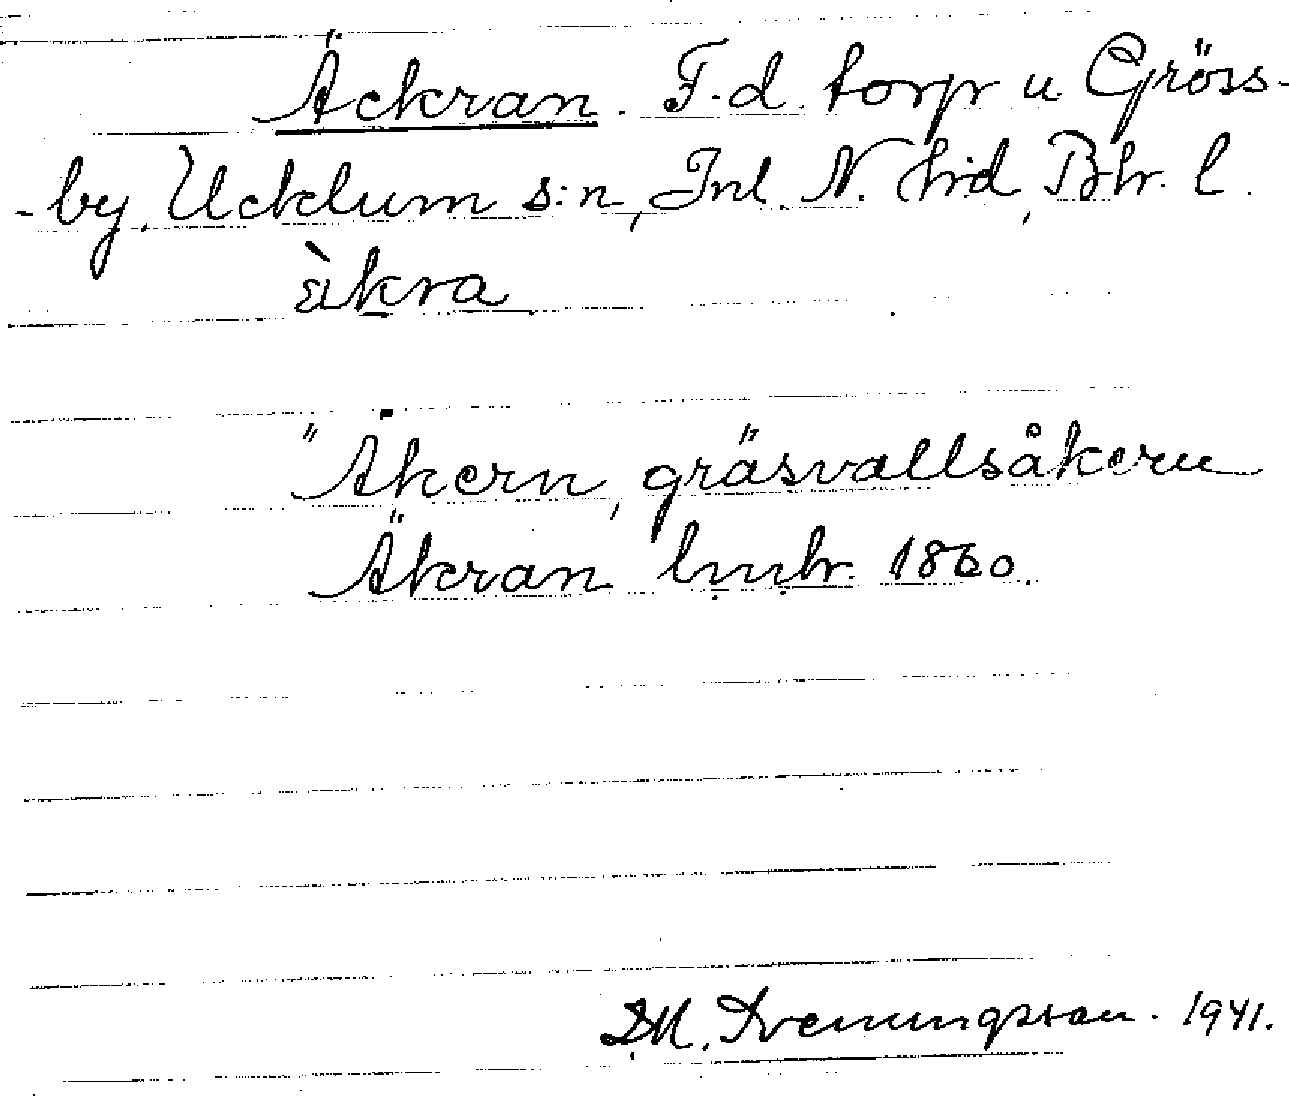 Äckran. F.d. torp u Gröss-
-by, Ucklum s:n, Inl. N. hd, Bhr. l.
àkra
"Åkern, gräsvallsåkern
Äkran hmbr. 1860.
D.M. Svenungsson. 1941.